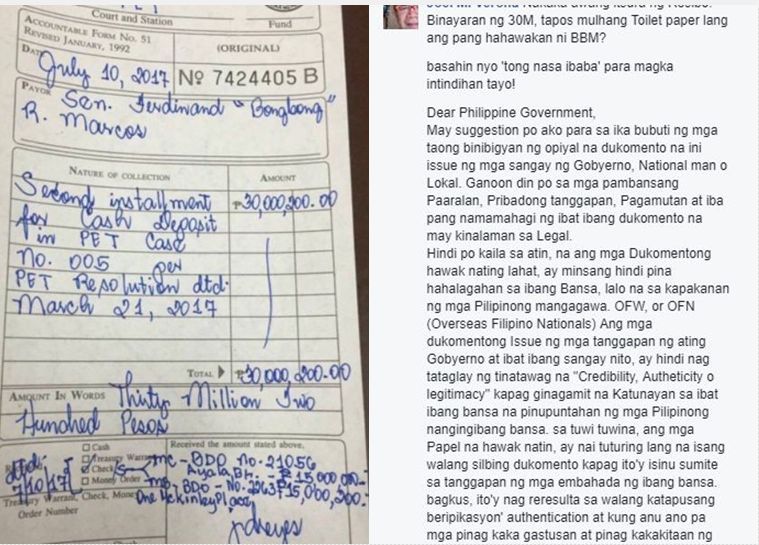 PET
Court and Station
Fund
ACCOUNTABLE FORM No. 51
REVISED JANUARY, 1992
(ORIGINAL)
DATE
July 10, 2017
No 7424405 B
PAYOR
Sen. Ferdinand "Bongbong"
R. Marcos
NATURE OF COLLECTION
AMOUNT
Second installment
₱30,000,200.00
for Cash Deposit
in PET Case
No. 005 per
PET Resolution dtd.
March 21, 2017
TOTAL
₱30,000,200.00
AMOUNT IN WORDS Thirty Million Two
Hundred Pesos
Received the amount stated above.
Cash
Treasury Warrant
Check
Money Order
mc - BDO No. 21056
Ayala Br. - ₱15,000,000.-
BDO - No. 2263 ₱15,000,200.-
One McKinley Place
Treasury Warrant, Check, Money
Order Number
Binayaran ng 30M, tapos mulhang Toilet paper lang
ang pang hahawakan ni BBM?
basahin nyo 'tong nasa ibaba' para magka
intindihan tayo!
Dear Philippine Government,
May suggestion po ako para sa ika bubuti ng mga
taong binibigyan ng opiyal na dukomento na ini
issue ng mga sangay ng Gobyerno, National man o
Lokal. Ganoon din po sa mga pambansang
Paaralan, Pribadong tanggapan, Pagamutan at iba
pang namamahagi ng ibat ibang dukomento na
may kinalaman sa Legal.
Hindi po kaila sa atin, na ang mga Dukomentong
hawak nating lahat, ay minsang hindi pina
hahalagahan sa ibang Bansa, lalo na sa kapakanan
ng mga Pilipinong mangagawa. OFW, or OFN
(Overseas Filipino Nationals) Ang mga
dukomentong Issue ng mga tanggapan ng ating
Gobyerno at ibat ibang sangay nito, ay hindi nag
tataglay ng tinatawag na "Credibility, Autheticity o
legitimacy" kapag ginagamit na Katunayan sa ibat
ibang bansa na pinupuntahan ng mga Pilipinong
nangingibang bansa. sa tuwi tuwina, ang mga
Papel na hawak natin, ay nai tuturing lang na isang
walang silbing dukomento kapag ito'y isinu sumite
sa tanggapan ng mga embahada ng ibang bansa.
bagkus, ito'y nag reresulta sa walang katapusang
beripikasyon' authentication at kung anu ano pa
mga pinag kaka gastusan at pinag kakakitaan ng